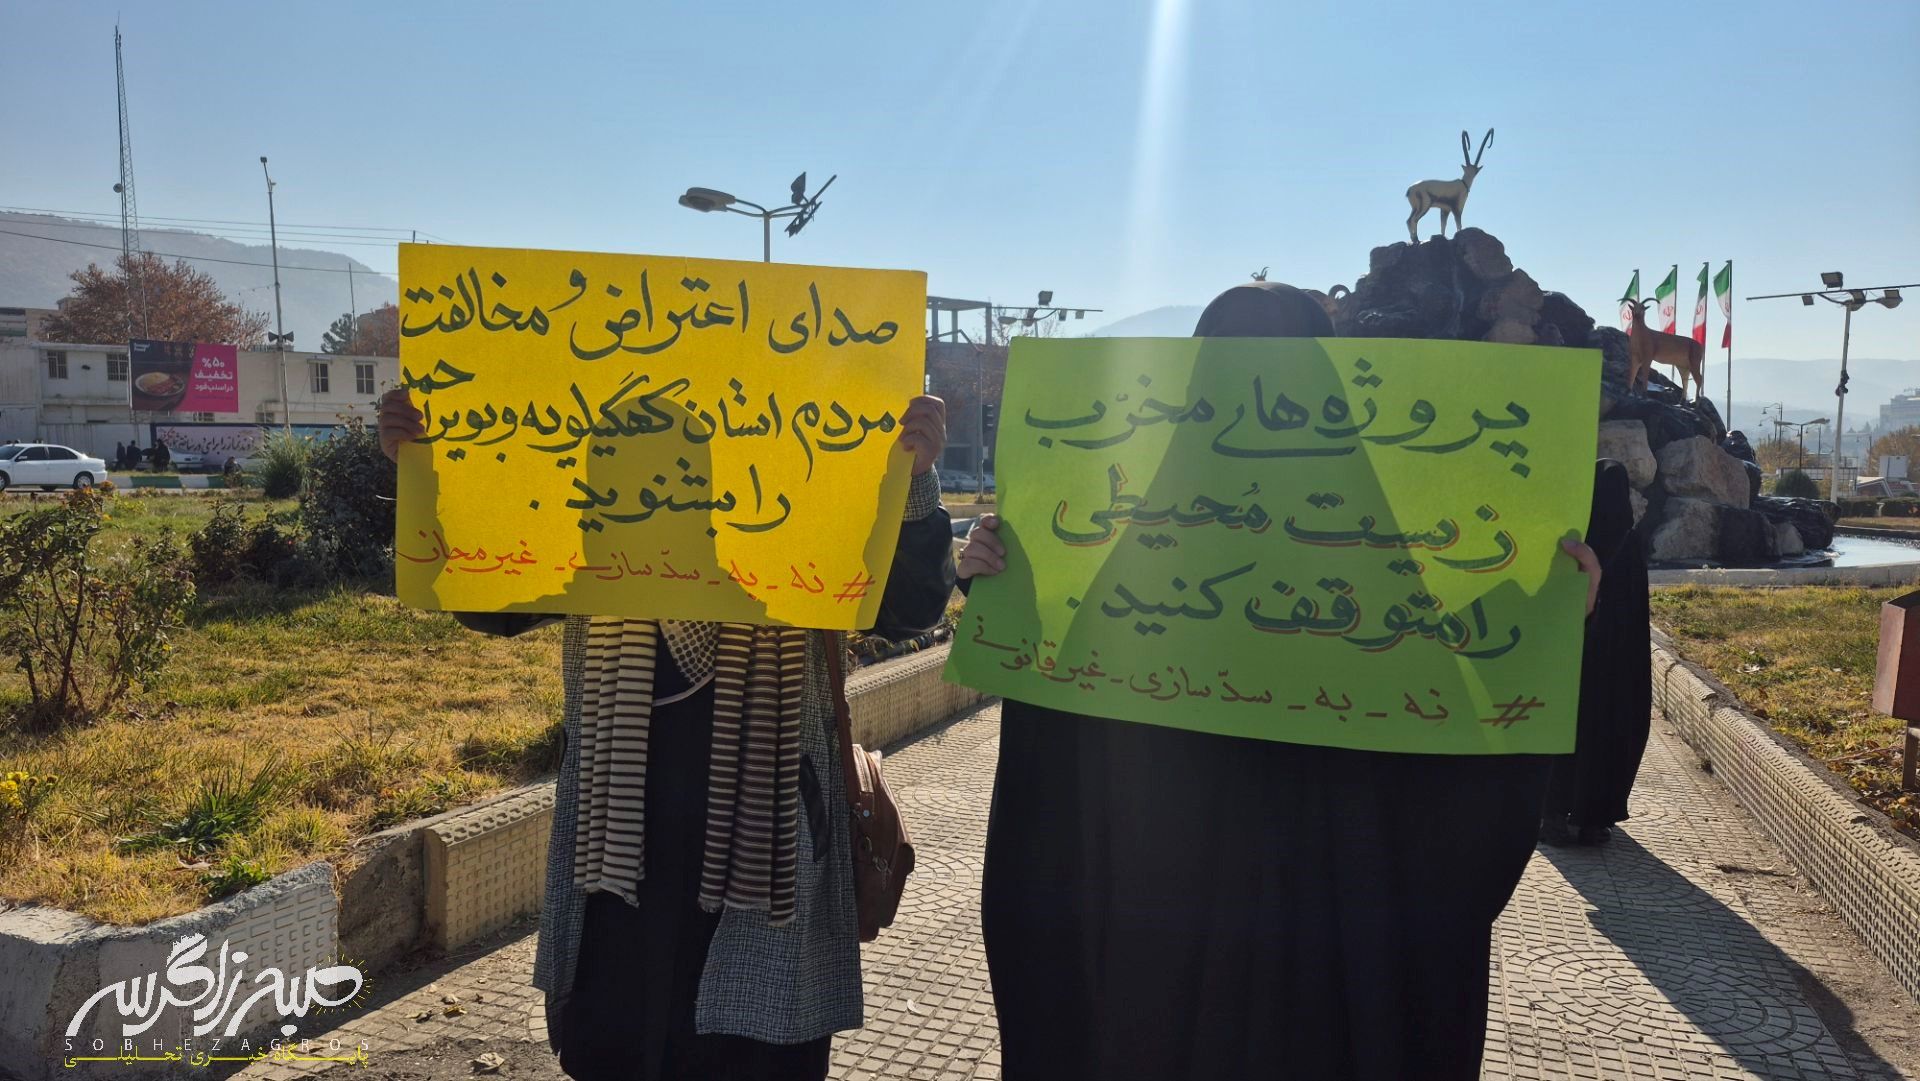 صدای اعتراض و مخالفت
مردم استان کهگیلویه و بویراحمد
را بشنوید.
# نه - به - سدّسازی - غیرمجاز
پروژه‌های مخرّب
زیست مُحیطی
را متوقف کنید.
# نه - به - سدّسازی - غیرقانونی
%۵۰
تخفیف
در اسنپ‌فود
صبح زاگرس
SOBHEZAGROS
پایگاه خبری تحلیلی